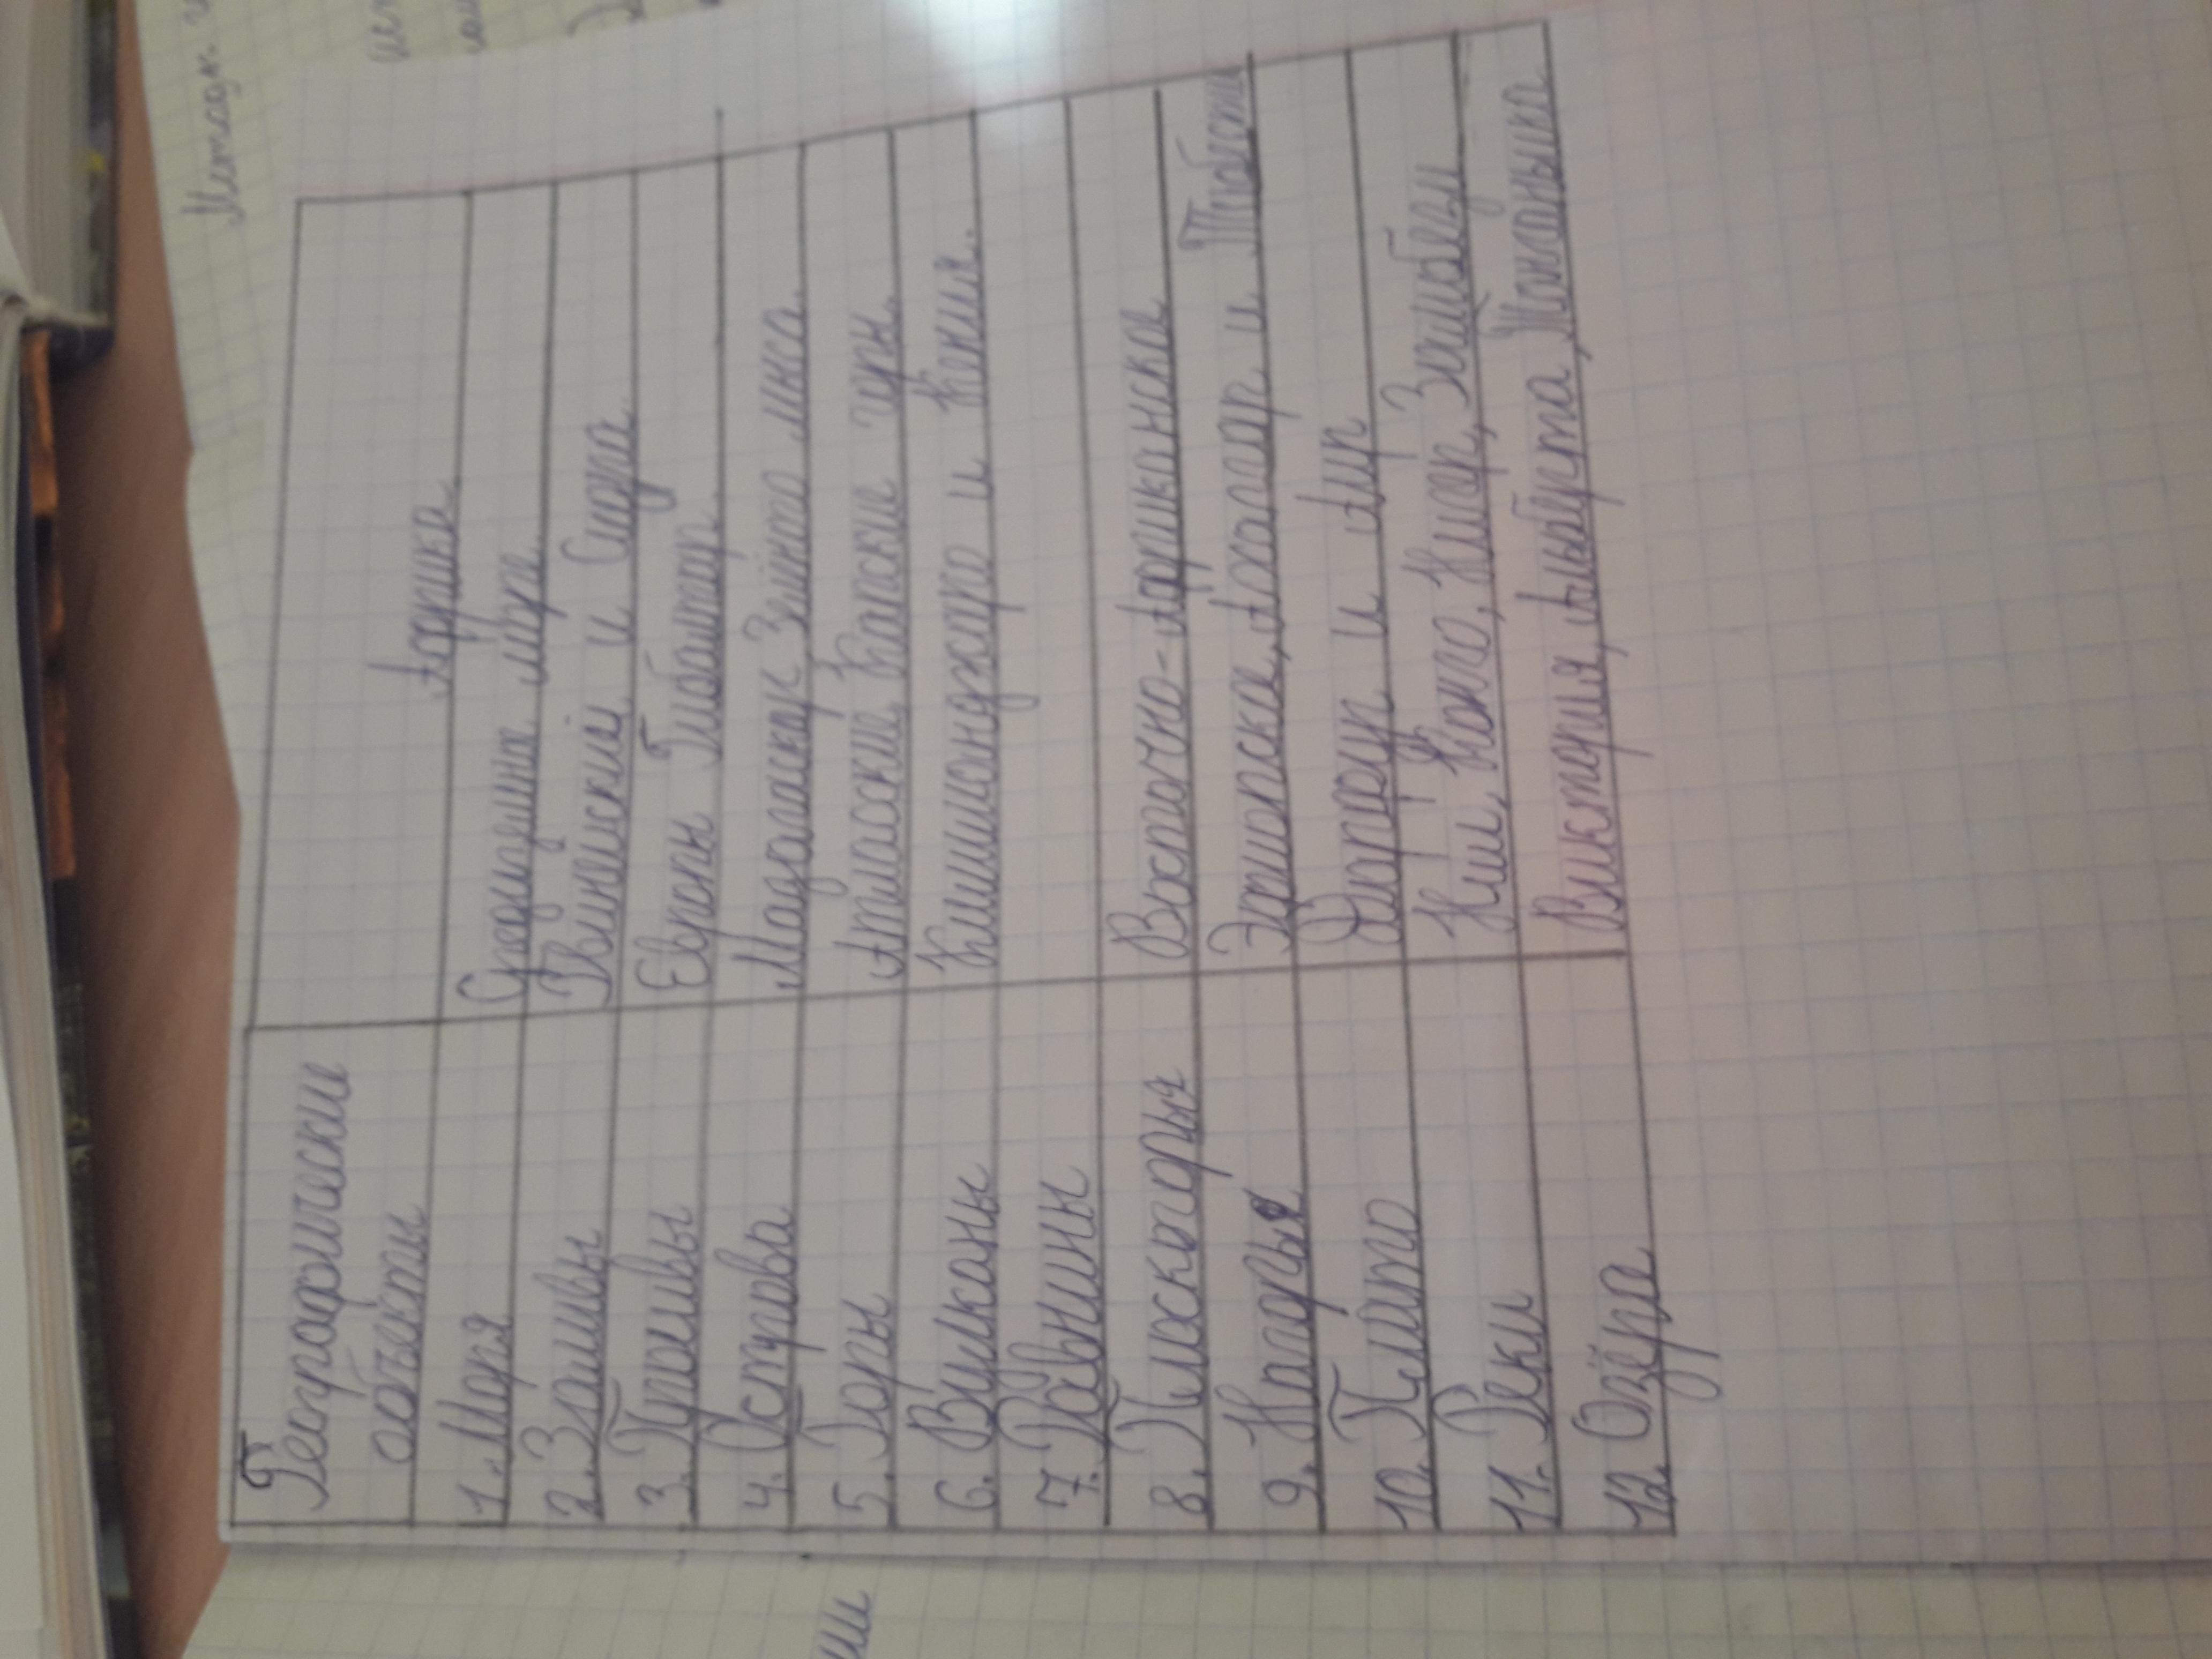 Географические
объекты
Африка
1. Моря
Средиземн море
2. Заливы
Гвинейский и Сидра
3. Проливы
Европы Гибалтар
4. Острова
Мадагаскар
5. Горы
Атласские, Капские
6. Вулканы
Килиманджаро и Кения.
7. Равнины
8. Плоскогорья
Восточно-Африканское
9. Нагорья
Эфиопское, Ахаггар и Тибести
10. Плато
Дарфур и Аир
11. Реки
Нил, Конго, Нигер, Замбези
12. Озёра
Виктория, Альберта, Танганьика